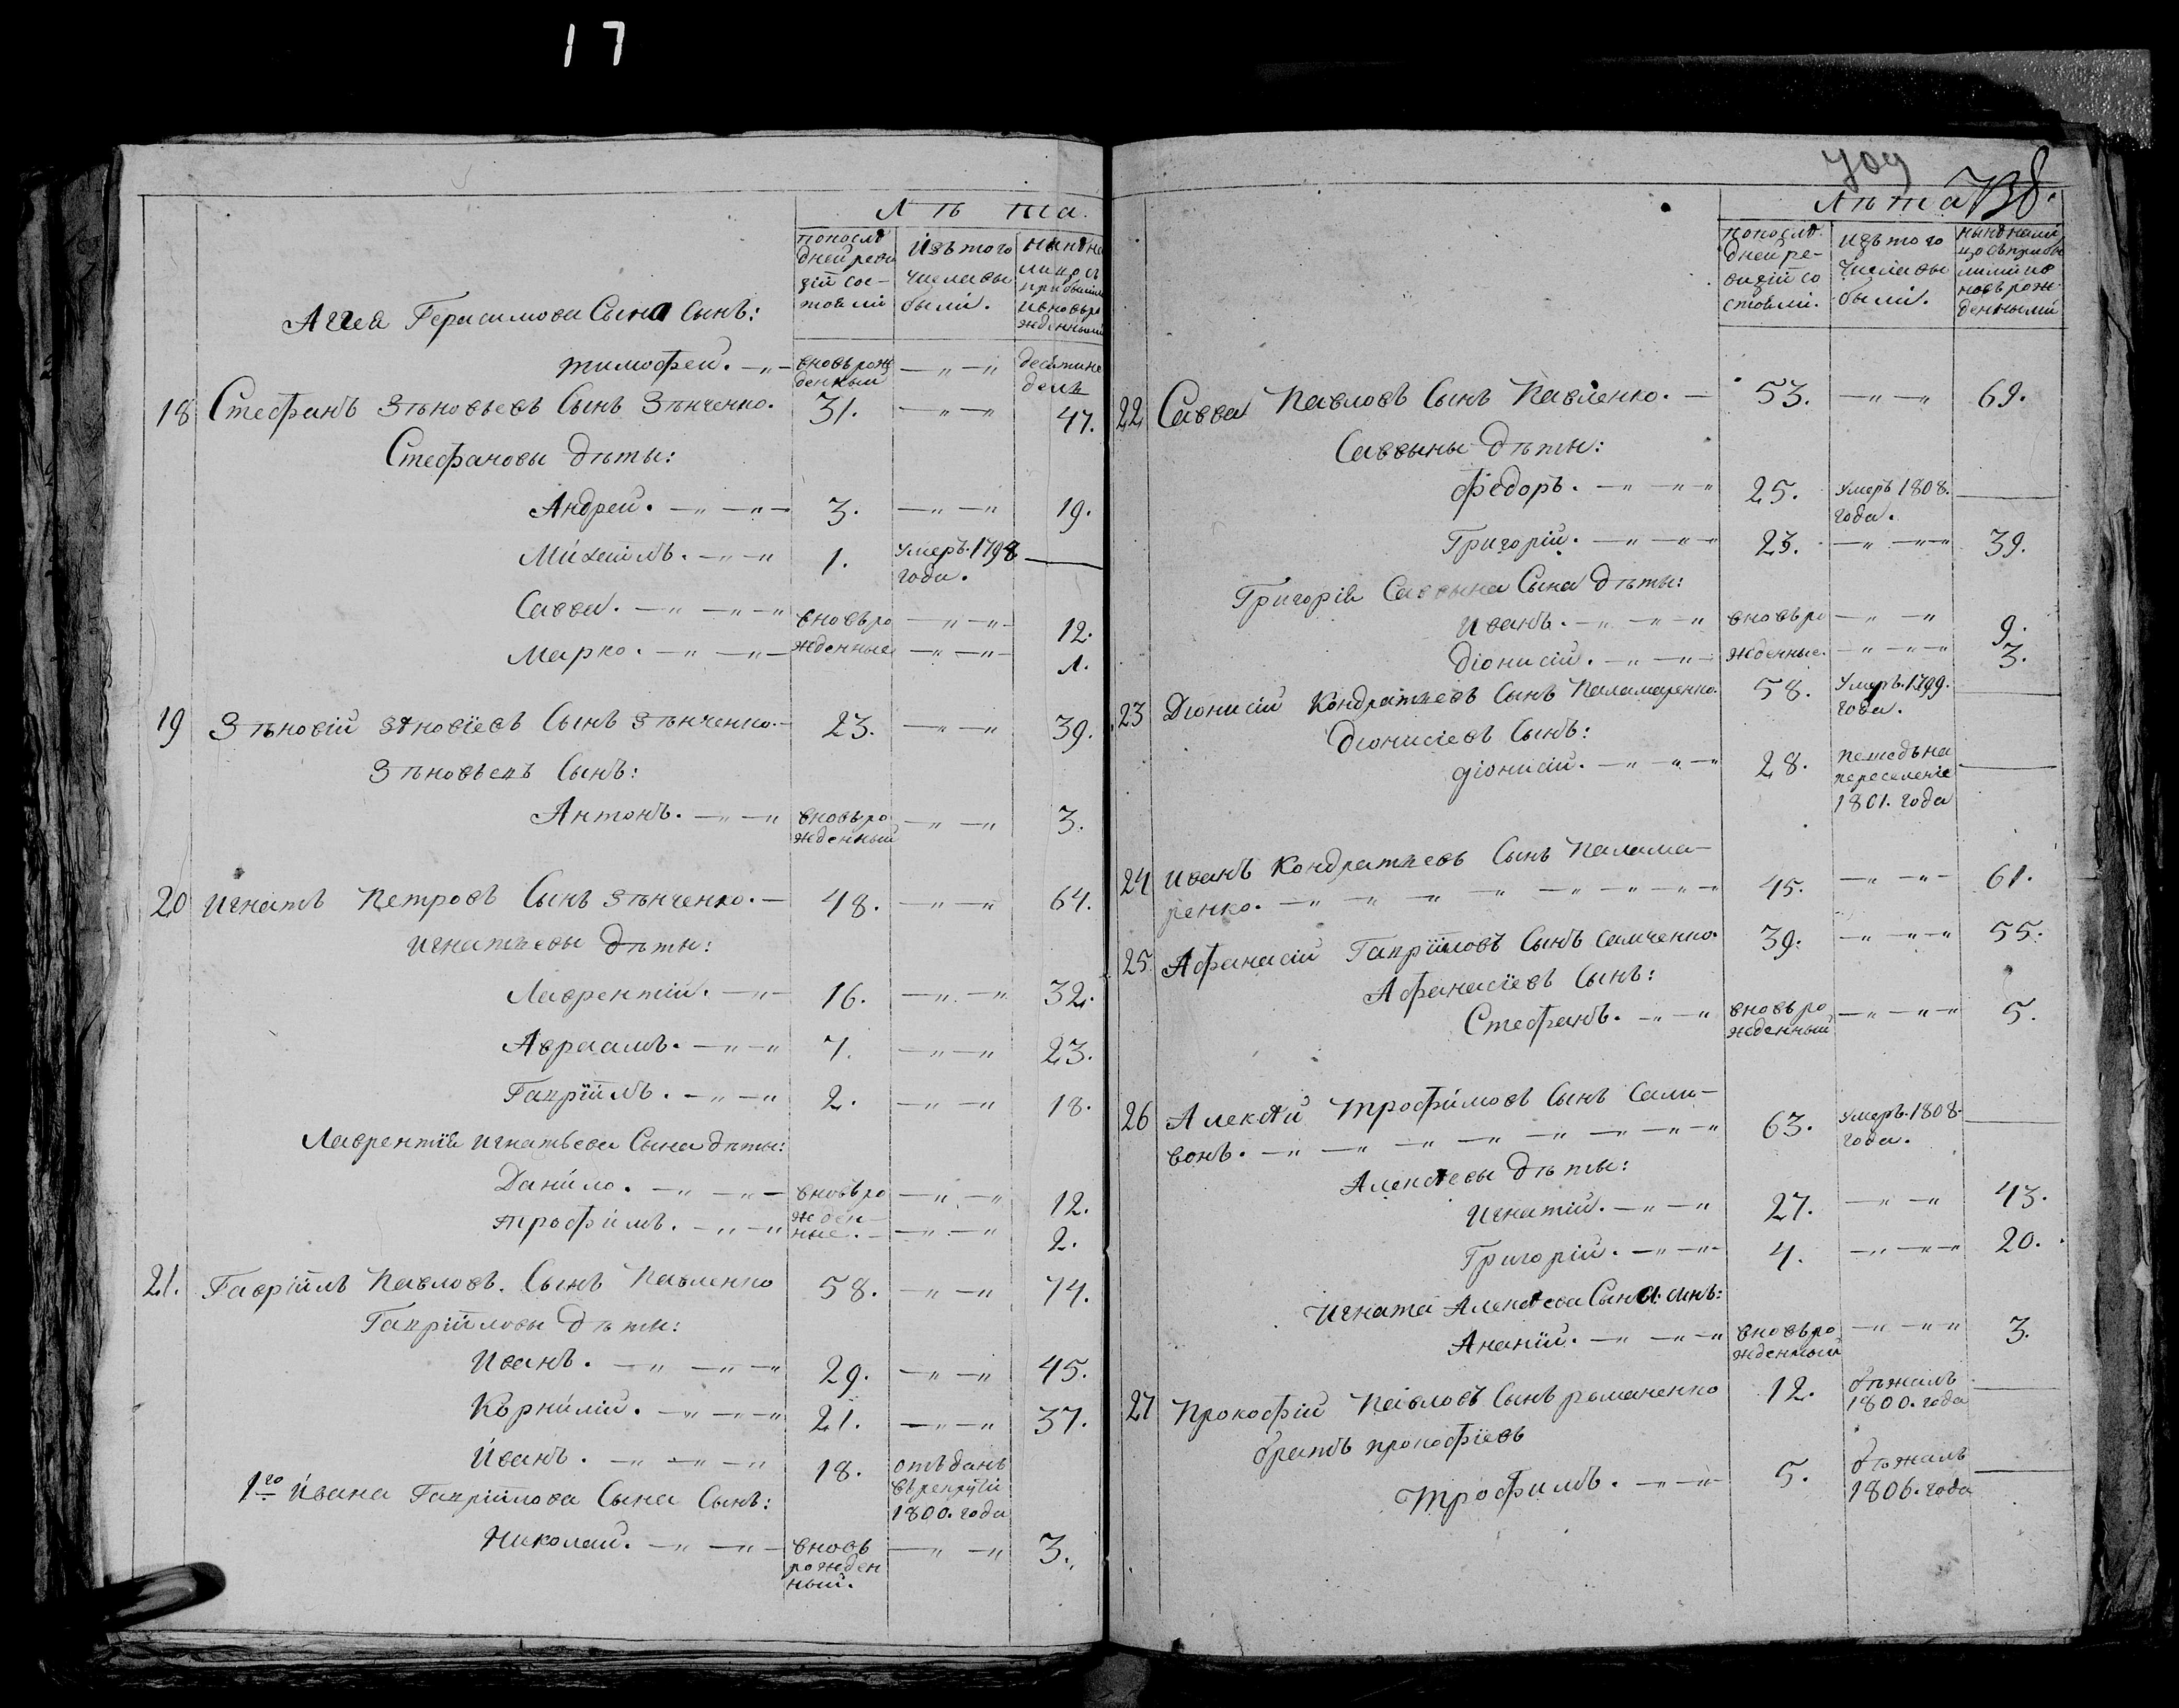 17
Лѣта.
По послѣ
дней реви
зіи сос-
тояли
Изъ того
числа вы
были.
Нынѣ на
лицо съ
прибылыми
и вновь ро
жденными
Аггея Герасимова Сына сынъ:
Тимофей. — вновь рож денный — — десяти не
делъ
18 Стефанъ Зѣновьевъ Сынъ Зѣнченко. 31. — — 47.
Стефановы дѣти:
Андрей. — — 3. — — 19.
Михаилъ. — — 1. умеръ 1798
года. —
Савва. — — вновь ро — — 12.
Марко. — — жденные — — 1.
19 Зѣновій Зѣновіевъ Сынъ Зѣнченко. — 23. — — 39.
Зѣновьевъ Сынъ:
Антонъ. — — вновь ро
жденный — — 3.
20 Игнатъ Петровъ Сынъ Зѣнченко. — 48. — — 64.
Игнатьевы дѣти:
Лаврентій. — 16. — — 32.
Авраамъ. — — 7. — — 23.
Гавріилъ. — — 2. — — 18.
Лаврентія Игнатьева Сына дѣти:
Данило. — — вновь ро — — 12.
Трофимъ. — — жден-
ные. — — 2.
21. Гавріилъ Павловъ Сынъ Павленко 58. — — 74.
Гавріиловы дѣти:
Иванъ. — — 29. — — 45.
Корнилій. — — 21. — — 37.
Иванъ. — — 18. отъданъ
въ рекруты
1800. года
1го Ивана Гавріилова Сына Сынъ:
Николай. — — вновь
рожден
ный. — — 3.
709
738.
Лѣта
По послѣ
дней ре-
визіи со
стояли.
Изъ того
числа вы
были.
Нынѣ нали
цо съ прибы
лыми и в
новь рож
денными
22 Савва Павловъ Сынъ Павленко. — 53. — — 69.
Саввины дѣти:
Федоръ. — — 25. Умеръ 1808.
года. —
Григорій. — — 23. — — 39.
Григорія Саввина Сына дѣти:
Иванъ. — — вновь ро — — 9.
Діонисій. — — жденные. — — 3.
23 Діонисій Кондратьевъ Сынъ Паламаренко. 58. Умеръ 1799.
года. —
Діонисіевъ Сынъ:
Діонисій. — — 28.
переселеніе
1801. года —
24 Иванъ Кондратьевъ Сынъ Палама-
ренко. — — 45. — — 61.
25 Афанасій Гавріиловъ Сынъ Самченко. 39. — — 55.
Афанасіевъ Сынъ:
Стефанъ. — — вновь ро
жденный — — 5.
26 Алексѣй Трофимовъ Сынъ Сали-
вонъ. — — 63. умеръ 1808
года. —
Алексѣевы дѣти:
Игнатій. — — 27. — — 43.
Григорій. — — 4. — — 20.
Игната Алексѣева Сына сынъ:
Ананій. — — вновь ро
жденный — — 3.
27 Прокофій Павловъ Сынъ романенко 12. бѣжалъ
1800. года —
братъ прокофіевъ
Трофимъ. — — 5. бѣжалъ
1806. года —